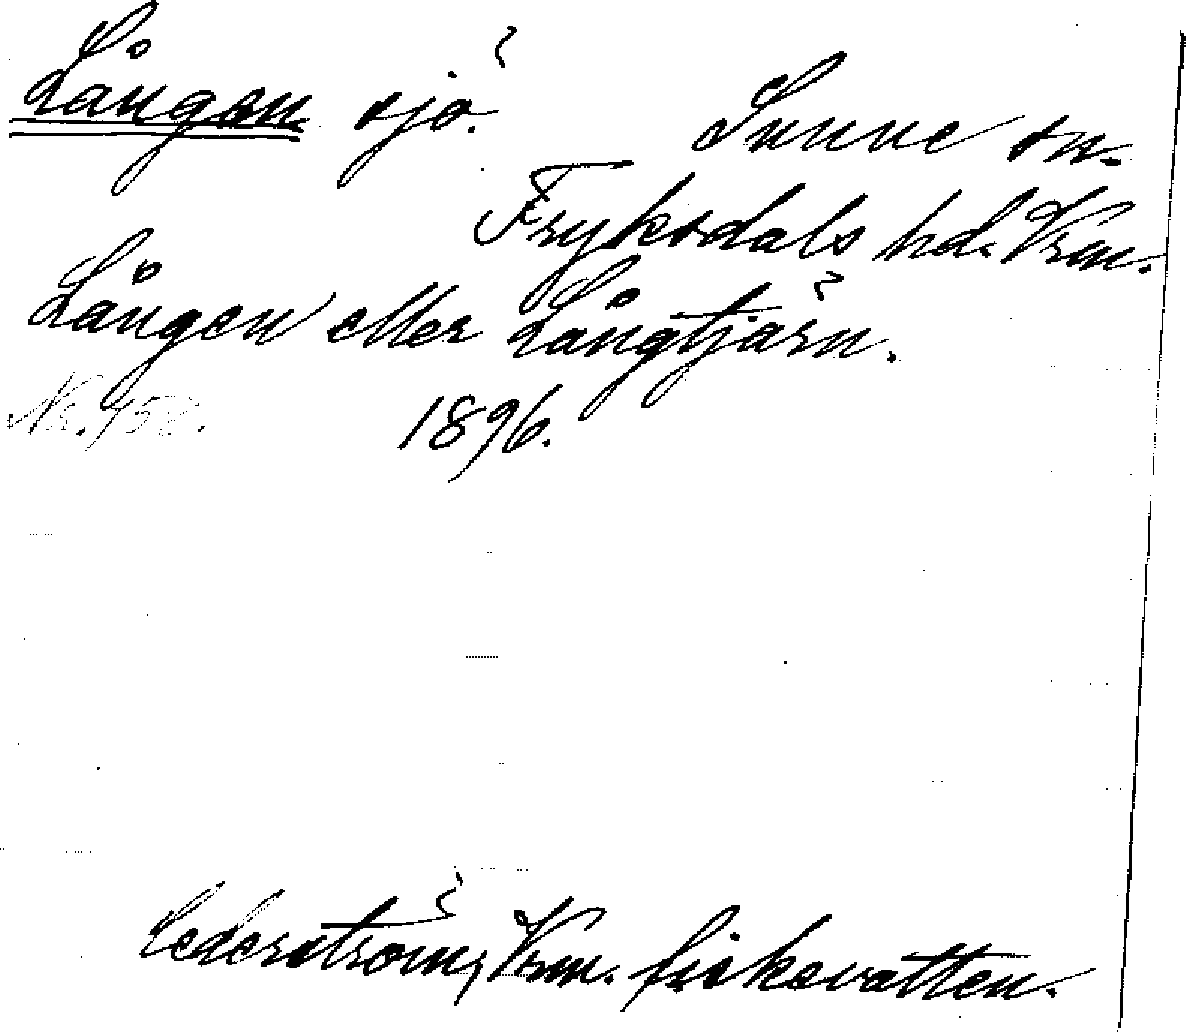 Lången. sjö.
Sunne sn.
Fryksdals hd. Vrm.
Lången eller Långtjärn.
No. 458. 1896.
Cederström, Vrm. fiskevatten.